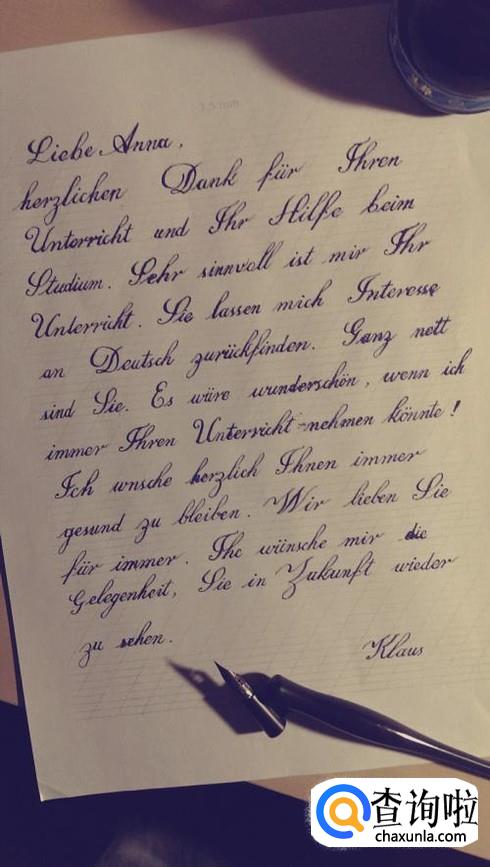 3,5 mm
Liebe Anna,
herzlichen Dank für Ihren
Unterricht und Ihr Hilfe beim
Studium. Sehr sinnvoll ist mir Ihr
Unterricht. Sie lassen mich Interesse
an Deutsch zurückfinden. Ganz nett
sind Sie. Es wäre wunderschön, wenn ich
immer Ihren Unterricht-nehmen könnte!
Ich wnsche herzlich Ihnen immer
gesund zu bleiben. Wir lieben Sie
für immer. Ihc wünsche mir die
Gelegenheit, Sie in Zukunft wieder
zu sehen.
Klaus
查询啦
chaxunla.com